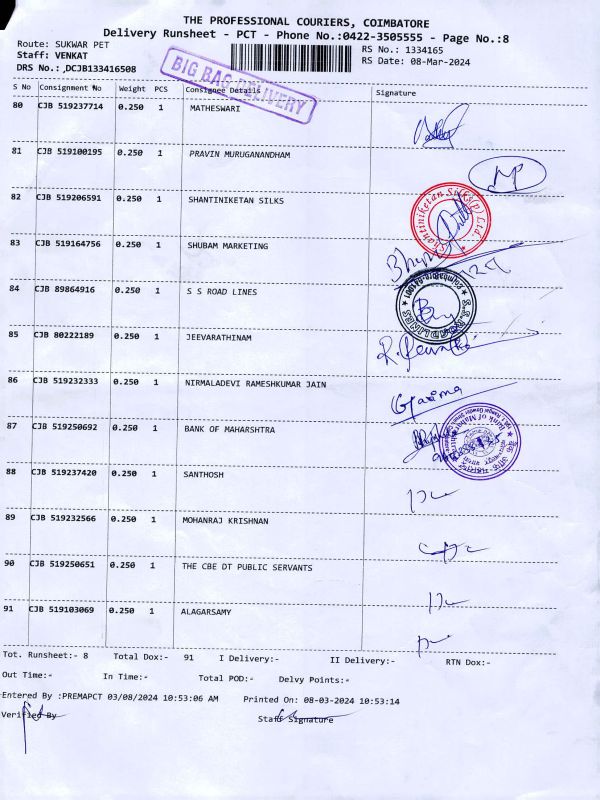 THE PROFESSIONAL COURIERS, COIMBATORE
Delivery Runsheet - PCT - Phone No.:0422-3505555 - Page No.:8
Route: SUKWAR PET RS No.: 1334165
Staff: VENKAT RS Date: 08-Mar-2024
DRS No.:,DCJB133416508
BIG BAG DELIVERY
S No Consignment No Weight PCS Consignee Details Signature
80 CJB 519237714 0.250 1 MATHESWARI
81 CJB 519100195 0.250 1 PRAVIN MURUGANANDHAM
82 CJB 519206591 0.250 1 SHANTINIKETAN SILKS
Shantiniketan Silks(p) Ltd.
83 CJB 519164756 0.250 1 SHUBAM MARKETING
84 CJB 89864916 0.250 1 S S ROAD LINES
85 CJB 80222189 0.250 1 JEEVARATHINAM
86 CJB 519232333 0.250 1 NIRMALADEVI RAMESHKUMAR JAIN
Garima
87 CJB 519250692 0.250 1 BANK OF MAHARSHTRA
88 CJB 519237420 0.250 1 SANTHOSH
89 CJB 519232566 0.250 1 MOHANRAJ KRISHNAN
90 CJB 519250651 0.250 1 THE CBE DT PUBLIC SERVANTS
91 CJB 519103069 0.250 1 ALAGARSAMY
Tot. Runsheet:- 8 Total Dox:- 91 I Delivery:- II Delivery:- RTN Dox:-
Out Time:- In Time:- Total POD:- Delvy Points:-
Entered By :PREMAPCT 03/08/2024 10:53:06 AM Printed On: 08-03-2024 10:53:14
Verified By Staff Signature